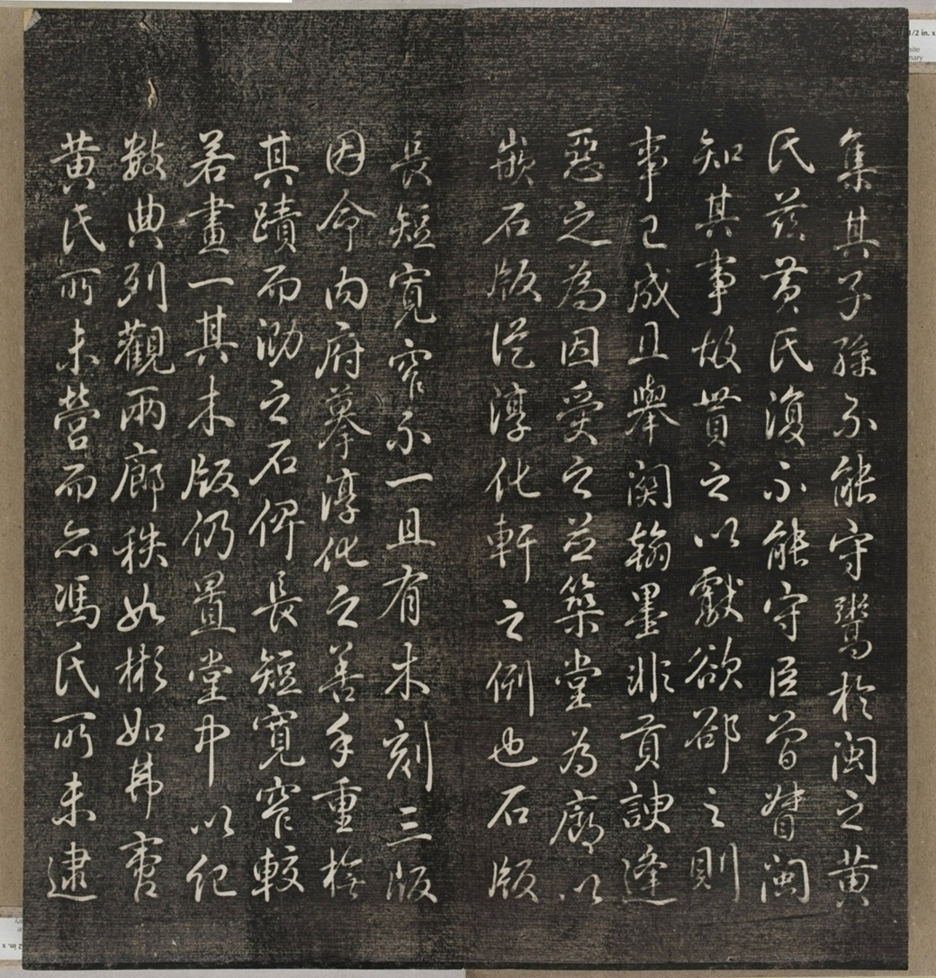 集其子孫不能守鬻於閩之黃
氏茲黃氏復不能守臣曾督閩
知其事故貰之以獻欲郤之則
事已成且舉關翰墨非貢諛逢
惡之為因受之並築堂為廊以
嵌石版從淳化軒之例也石版
長短寬窄不一且有木刻三版
因命內府摹淳化之善手重橅
其蹟而泐之石俾長短寬窄較
若畫一其木版仍置堂中以紀
數典列觀兩廊秩如彬如弗啻
黃氏所未營而亦馮氏所未逮
1/2 in. x